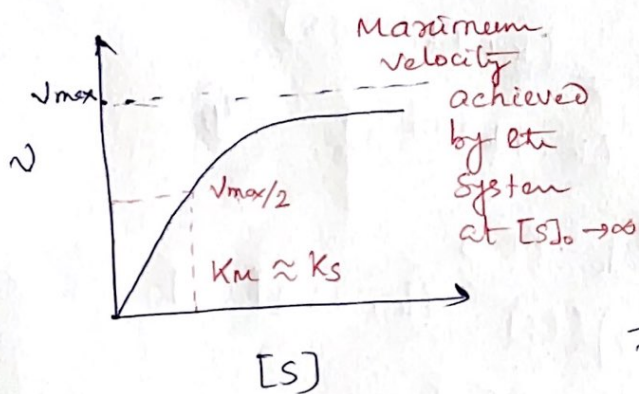 Maximum
velocity
achieved
by the
system
at [S]₀ → ∞
Vmax
v
Vmax/2
KM ≈ KS
[S]